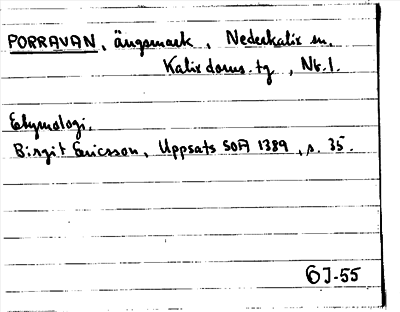 PORRAVAN, ängsmark, Nederkalix sn,
Kalix doms. tg, Nb. l.
Etymologi.
Birgit Ericsson, Uppsats SOFI 1389, s. 35.
6J-55